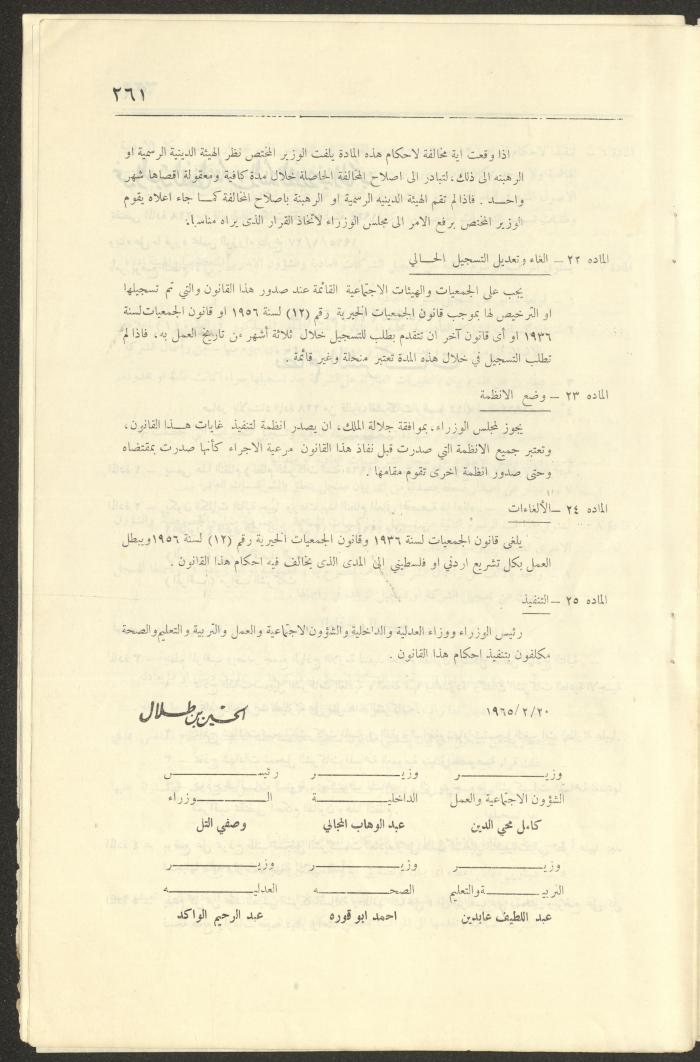 ٢٦١
اذا وقعت اية مخالفة لاحكام هذه المادة يلفت الوزير المختص نظر الهيئة الدينية الرسمية او
الرهبنه الى ذلك، لتبادر الى اصلاح المخالفة الحاصلة خلال مدة كافية ومعقولة اقصاها شهر
واحد . فاذا لم تقم الهيئة الدينيه الرسمية او الرهبنة باصلاح المخالفة كما جاء اعلاه يقوم
الوزير المختص برفع الامر الى مجلس الوزراء لاتخاذ القرار الذى يراه مناسبا.
الماده ٢٢ – الغاء وتعديل التسجيل الحالي
يجب على الجمعيات والهيئات الاجتماعية القائمة عند صدور هذا القانون والتي تم تسجيلها
او الترخيص لها بموجب قانون الجمعيات الخيرية رقم (١٢) لسنة ١٩٥٦ او قانون الجمعيات لسنة
١٩٣٦ او أى قانون آخر ان تتقدم بطلب للتسجيل خلال ثلاثة أشهر من تاريخ العمل به، فاذا لم
تطلب التسجيل في خلال هذه المدة تعتبر منحلة وغير قائمة .
الماده ٢٣ – وضع الانظمة
يجوز لمجلس الوزراء، بموافقة جلالة الملك، ان يصدر انظمة لتنفيذ غايات هذا القانون،
وتعتبر جميع الانظمة التي صدرت قبل نفاذ هذا القانون مرعية الاجراء كأنها صدرت بمقتضاه
وحتى صدور انظمة اخرى تقوم مقامها .
الماده ٢٤ – الألغاءات
يلغى قانون الجمعيات لسنة ١٩٣٦ وقانون الجمعيات الخيرية رقم (١٢) لسنة ١٩٥٦ ويبطل
العمل بكل تشريع اردني او فلسطيني الى المدى الذى يخالف فيه احكام هذا القانون .
الماده ٢٥ – التنفيذ
رئيس الوزراء ووزاء العدلية والداخلية والشؤون الاجتماعية والعمل والتربية والتعليم والصحة
مكلفون بتنفيذ احكام هذا القانون .
١٩٦٥/٢/٢٠ الحسين بن طلال
وزير وزير رئيس
الشؤون الاجتماعية والعمل الداخلية الوزراء
كامل محي الدين عبد الوهاب المجالي وصفي التل
وزير وزير وزير
التربية والتعليم الصحه العدليه
عبد اللطيف عابدين احمد ابو قوره عبد الرحيم الواكد